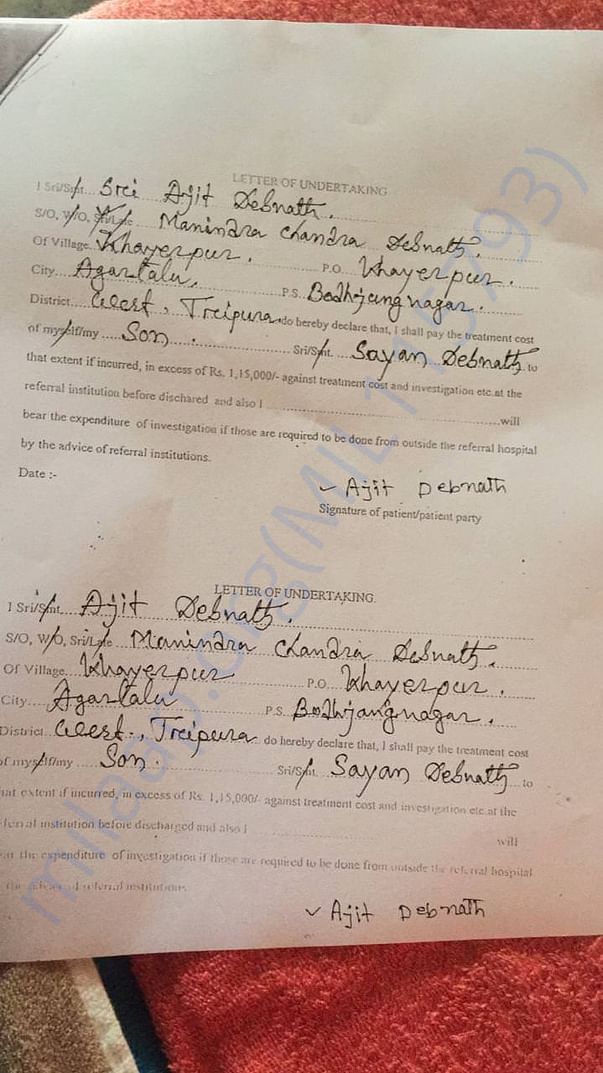 LETTER OF UNDERTAKING
I Sri/Smt. Sri Ajit Debnath.
S/O, W/O, Sri/Late Manindra Chandra Debnath.
Of Village Khayerpur. P.O. Khayerpur.
City Agartala. P.S. Bodhjungnagar.
District West, Tripura do hereby declare that, I shall pay the treatment cost
of myself/my Son. Sri/Smt. Sayan Debnath to
that extent if incurred, in excess of Rs. 1,15,000/- against treatment cost and investigation etc.at the
referral institution before dischared and also I will
bear the expenditure of investigation if those are required to be done from outside the referral hospital
by the advice of referral institutions.
Date :-
Ajit Debnath
Signature of patient/patient party
LETTER OF UNDERTAKING.
I Sri/Smt. Ajit Debnath.
S/O, W/O, Sri/Late Manindra Chandra Debnath.
Of Village Khayerpur P.O. Khayerpur.
City Agartala P.S. Bodhjangnagar.
District West., Tripura do hereby declare that, I shall pay the treatment cost
of myself/my Son. Sri/Smt. Sayan Debnath to
hat extent if incurred, in excess of Rs. 1,15,000/- against treatment cost and investigation etc.at the
ferral institution before discharged and also I will
ar the expenditure of investigation if those are required to be done from outside the referral hospital
the advice of referral institutions
Ajit Debnath